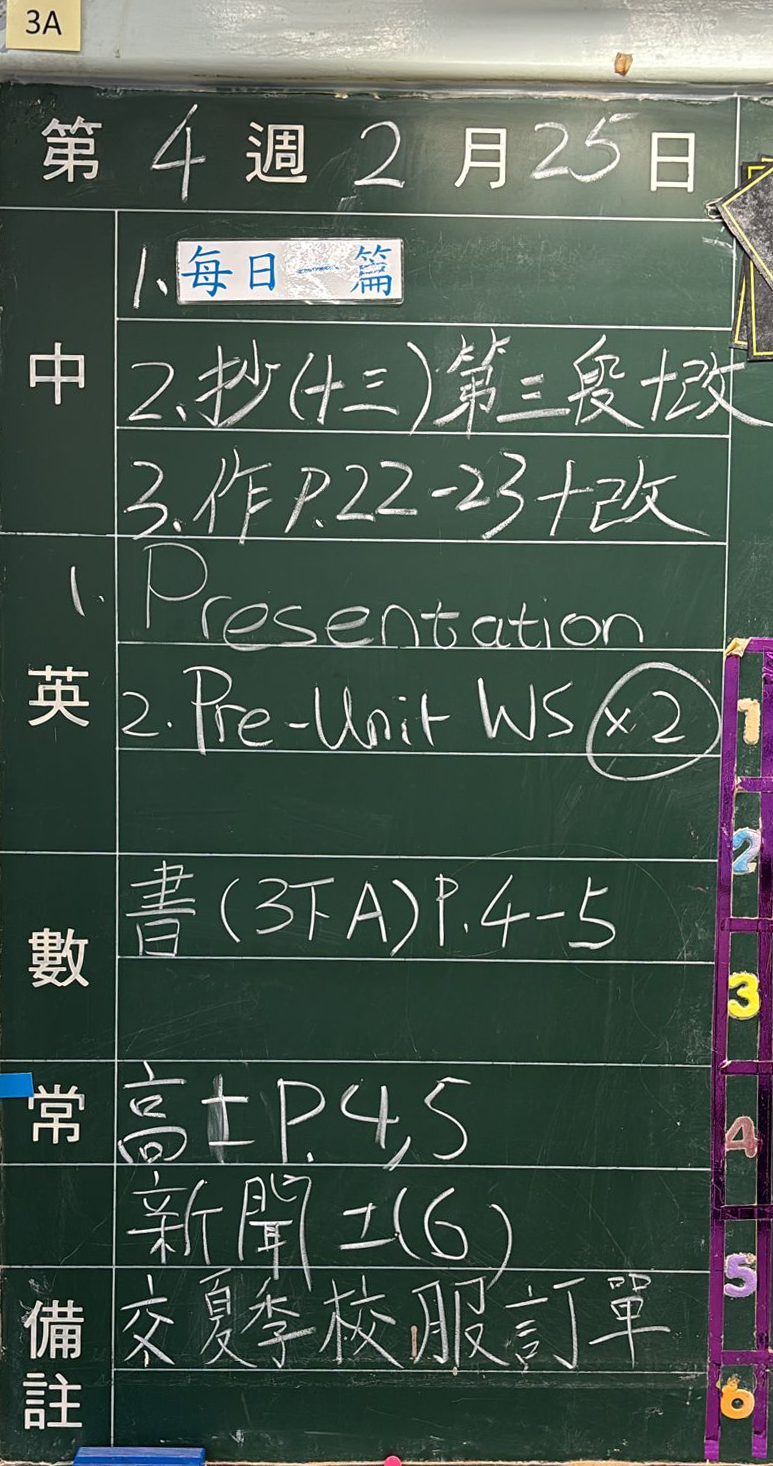 3A
第 4 週 2 月 25 日
中
1. 每日一篇
2. 抄(十三)第三段+改
3. 作 P.22-23+改
英
1. Presentation
2. Pre-Unit WS ×2
數
書(3下A)P.4-5
常
高士 P.4,5
新聞士(6)
備註
交夏季校服訂單
1
2
3
4
5
6